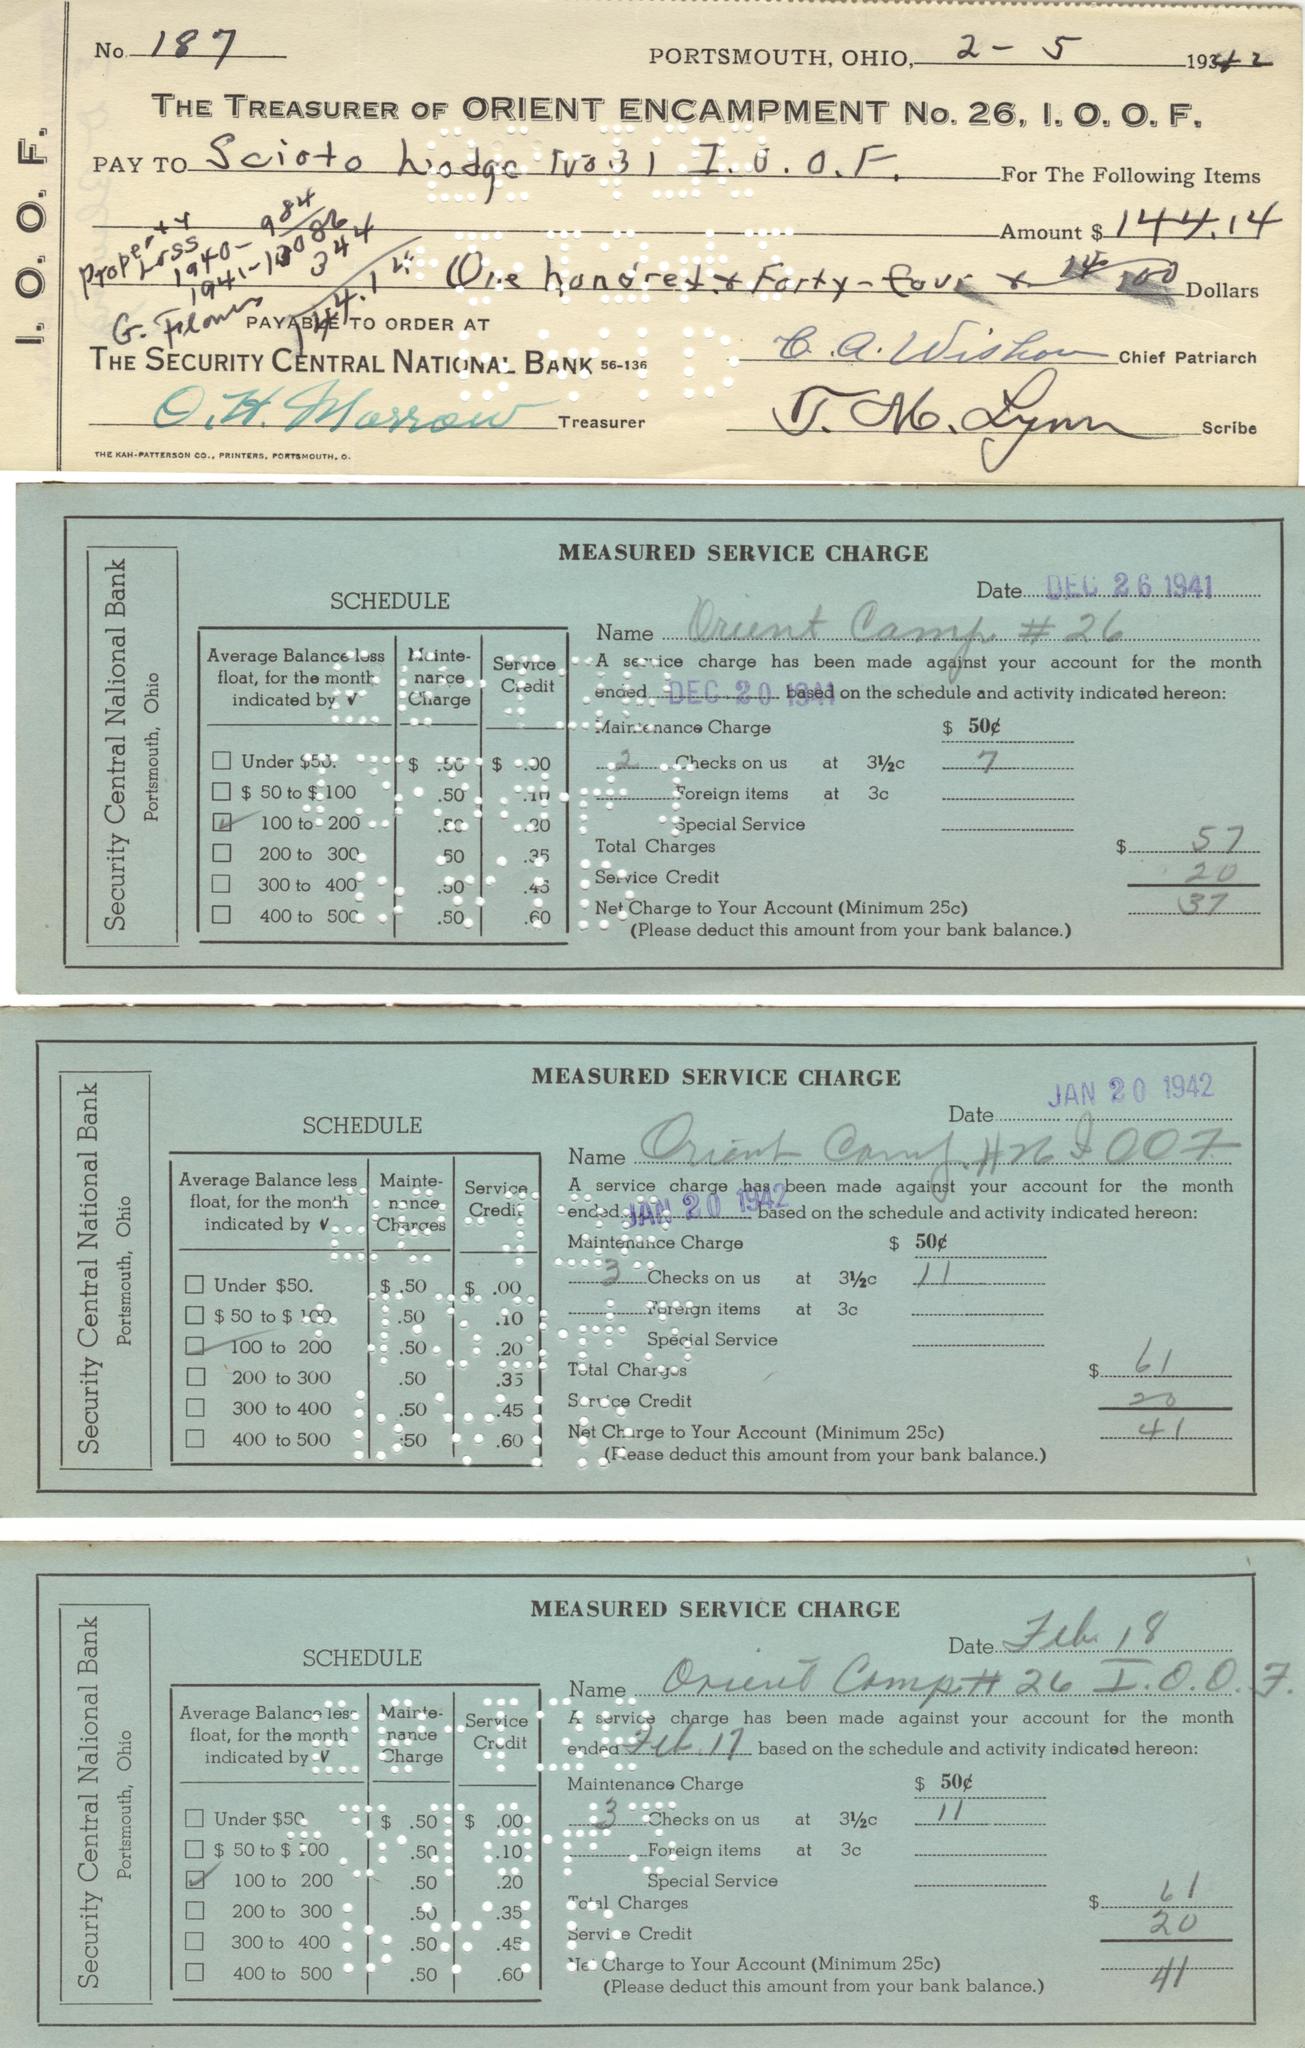 No. 187
PORTSMOUTH, OHIO, 2-5 1942
I. O. O. F.
THE TREASURER OF ORIENT ENCAMPMENT No. 26, I. O. O. F.
PAY TO Scioto Lodge No 31 I.O.O.F. For The Following Items
Amount $ 144.14
Property Loss
1940- 984
1941-
344
G. Flowers
One hundred & Forty-four & 14/100 Dollars
PAYABLE TO ORDER AT
THE SECURITY CENTRAL NATIONAL BANK 56-136
C. A. Wishon Chief Patriarch
O. H. Morrow Treasurer
T. M. Lynn Scribe
THE KAH-PATTERSON CO., PRINTERS, PORTSMOUTH, O.
Security Central National Bank
Portsmouth, Ohio
MEASURED SERVICE CHARGE
Date DEC 26 1941
SCHEDULE
Name Orient Camp. # 26
Average Balance less float, for the month indicated by ✓
Maintenance Charge
Service Credit
A service charge has been made against your account for the month
ended DEC 20 1941 based on the schedule and activity indicated hereon:
Maintenance Charge $ 50¢
Under $50. $ .50 $ .00
2 Checks on us at 3½c 7
$ 50 to $ 100 .50 .10
Foreign items at 3c
100 to 200 .50 .20
Special Service
Total Charges $ 57
200 to 300 .50 .35
Service Credit 20
300 to 400 .50 .45
Net Charge to Your Account (Minimum 25c) 37
400 to 500 .50 .60
(Please deduct this amount from your bank balance.)
Security Central National Bank
Portsmouth, Ohio
MEASURED SERVICE CHARGE
Date JAN 20 1942
SCHEDULE
Name Orient Camp. #26 I OOF
Average Balance less float, for the month indicated by ✓
Maintenance Charges
Service Credit
A service charge has been made against your account for the month
ended JAN 20 1942 based on the schedule and activity indicated hereon:
Maintenance Charge $ 50¢
Under $50. $ .50 $ .00
3 Checks on us at 3½c 11
$ 50 to $ 100 .50 .10
Foreign items at 3c
100 to 200 .50 .20
Special Service
Total Charges $ 61
200 to 300 .50 .35
Service Credit 20
300 to 400 .50 .45
Net Charge to Your Account (Minimum 25c) 41
400 to 500 .50 .60
(Please deduct this amount from your bank balance.)
Security Central National Bank
Portsmouth, Ohio
MEASURED SERVICE CHARGE
Date Feb. 18
SCHEDULE
Name Orient Camp. # 26 I.O.O.F.
Average Balance less float, for the month indicated by ✓
Maintenance Charge
Service Credit
A service charge has been made against your account for the month
ended Feb. 17 based on the schedule and activity indicated hereon:
Maintenance Charge $ 50¢
Under $50 $ .50 $ .00
3 Checks on us at 3½c 11
$ 50 to $ 100 .50 .10
Foreign items at 3c
100 to 200 .50 .20
Special Service
Total Charges $ 61
200 to 300 .50 .35
Service Credit 20
300 to 400 .50 .45
Net Charge to Your Account (Minimum 25c) 41
400 to 500 .50 .60
(Please deduct this amount from your bank balance.)